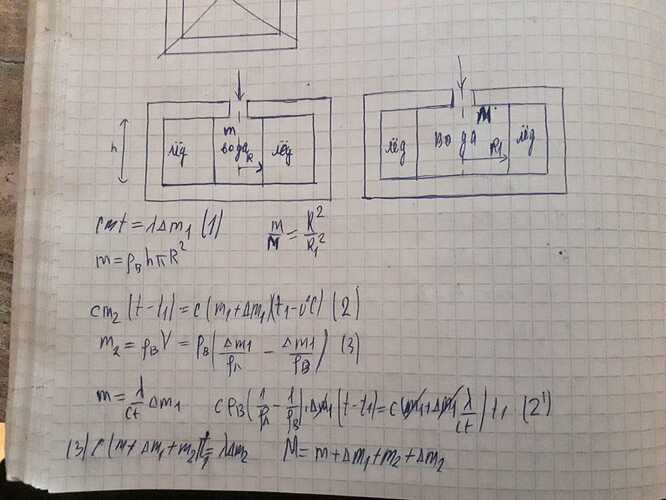 h
лёд
m
вода
R
лёд
лёд
вода
M
R₁
лёд
cmt = λΔm₁ (1)
m/M = R²/R₁²
m = ρ_в hπR²
cm₂(t-t₁) = c(m₁+Δm₁)(t₁-0°C) (2)
m₂ = ρ_в V = ρ_в (Δm₁/ρ_л - Δm₁/ρ_в) (3)
m = λ/ct Δm₁
cρ_в (1/ρ_л - 1/ρ_в)·Δm₁(t-t₁) = c(m₁+Δm₁ λ/ct) t₁ (2')
(3) c(m+Δm₁+m₂)t₁ = λΔm₂
M = m+Δm₁+m₂+Δm₂